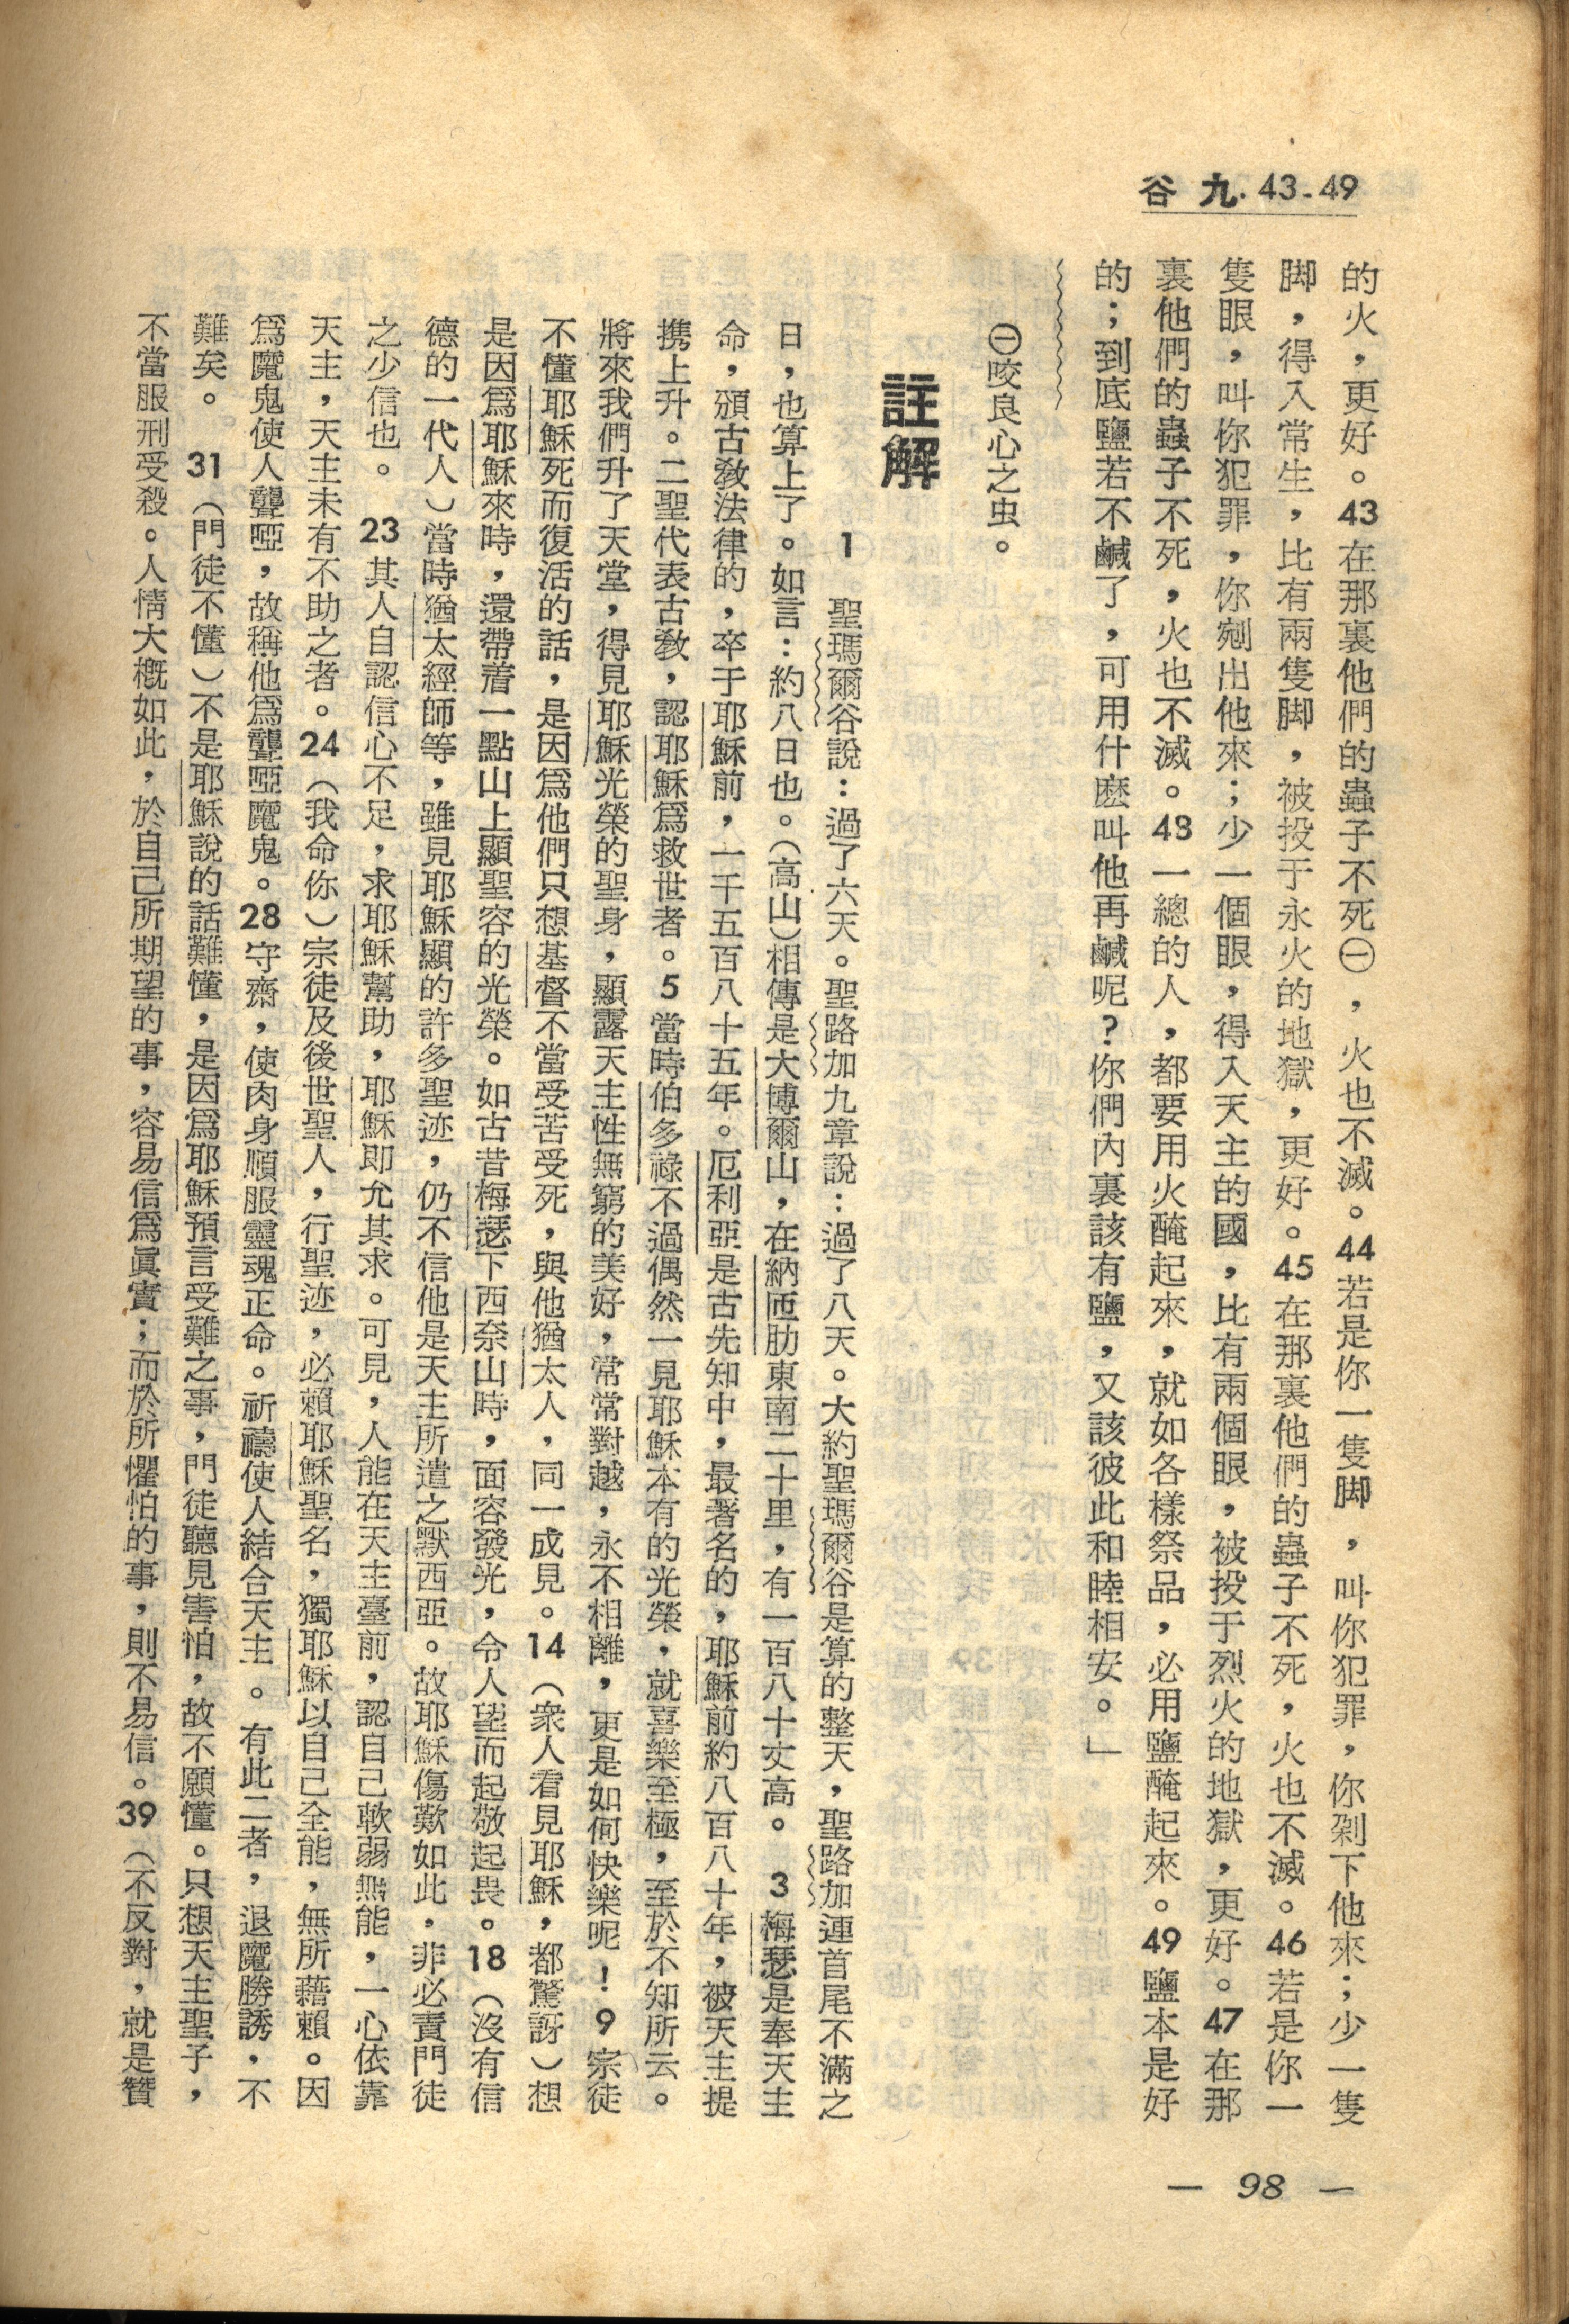 谷九.43-49
的火，更好。43在那裏他們的蟲子不死㊀，火也不滅。44若是你一隻脚，叫你犯罪，你剁下他來；少一隻
脚，得入常生，比有兩隻脚，被投于永火的地獄，更好。45在那裏他們的蟲子不死，火也不滅。46若是你一
隻眼，叫你犯罪，你剜出他來；少一個眼，得入天主的國，比有兩個眼，被投于烈火的地獄，更好。47在那
裏他們的蟲子不死，火也不滅。48一總的人，都要用火醃起來，就如各樣祭品，必用鹽醃起來。49鹽本是好
的；到底鹽若不鹹了，可用什麽叫他再鹹呢?你們內裏該有鹽，又該彼此和睦相安。」
㊀咬良心之虫。
註解
1 聖瑪爾谷說：過了六天。聖路加九章說：過了八天。大約聖瑪爾谷是算的整天，聖路加連首尾不滿之
日，也算上了。如言：約八日也。（高山）相傳是大博爾山，在納匝肋東南二十里，有一百八十丈高。 3 梅瑟是奉天主
命，頒古敎法律的，卒于耶穌前，一千五百八十五年。厄利亞是古先知中，最著名的，耶穌前約八百八十年，被天主提
携上升。二聖代表古敎，認耶穌爲救世者。5 當時伯多祿不過偶然一見耶穌本有的光榮，就喜樂至極，至於不知所云。
將來我們升了天堂，得見耶穌光榮的聖身，顯露天主性無窮的美好，常常對越，永不相離，更是如何快樂呢！9 宗徒
不懂耶穌死而復活的話，是因爲他們只想基督不當受苦受死，與他猶太人，同一成見。14（衆人看見耶穌，都驚訝）想
是因爲耶穌來時，還帶着一點山上顯聖容的光榮。如古昔梅瑟下西奈山時，面容發光，令人望而起敬起畏。18（沒有信
德的一代人）當時猶太經師等，雖見耶穌顯的許多聖迹，仍不信他是天主所遣之默西亞。故耶穌傷歎如此，非必責門徒
之少信也。 23 其人自認信心不足，求耶穌幫助，耶穌即允其求。可見，人能在天主臺前，認自己軟弱無能，一心依靠
天主，天主未有不助之者。24（我命你）宗徒及後世聖人，行聖迹，必賴耶穌聖名，獨耶穌以自己全能，無所藉賴。因
爲魔鬼使人聾啞，故稱他爲聾啞魔鬼。28 守齋，使肉身順服靈魂正命。祈禱使人結合天主。有此二者，退魔勝誘，不
難矣。 31（門徒不懂）不是耶穌說的話難懂，是因爲耶穌預言受難之事，門徒聽見害怕，故不願懂。只想天主聖子，
不當服刑受殺。人情大槪如此，於自己所期望的事，容易信爲眞實；而於所懼怕的事，則不易信。39（不反對，就是贊
— 98 —